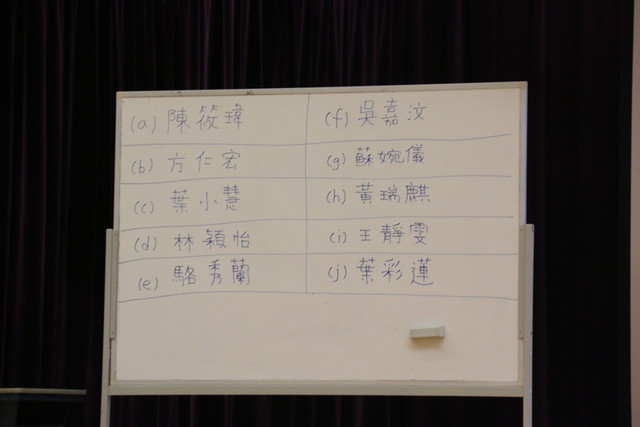 (a) 陳筱瑋
(b) 方仁宏
(c) 葉小慧
(d) 林穎怡
(e) 駱秀蘭
(f) 吳嘉汶
(g) 蘇婉儀
(h) 黃瑞麒
(i) 王靜雯
(j) 葉彩蓮